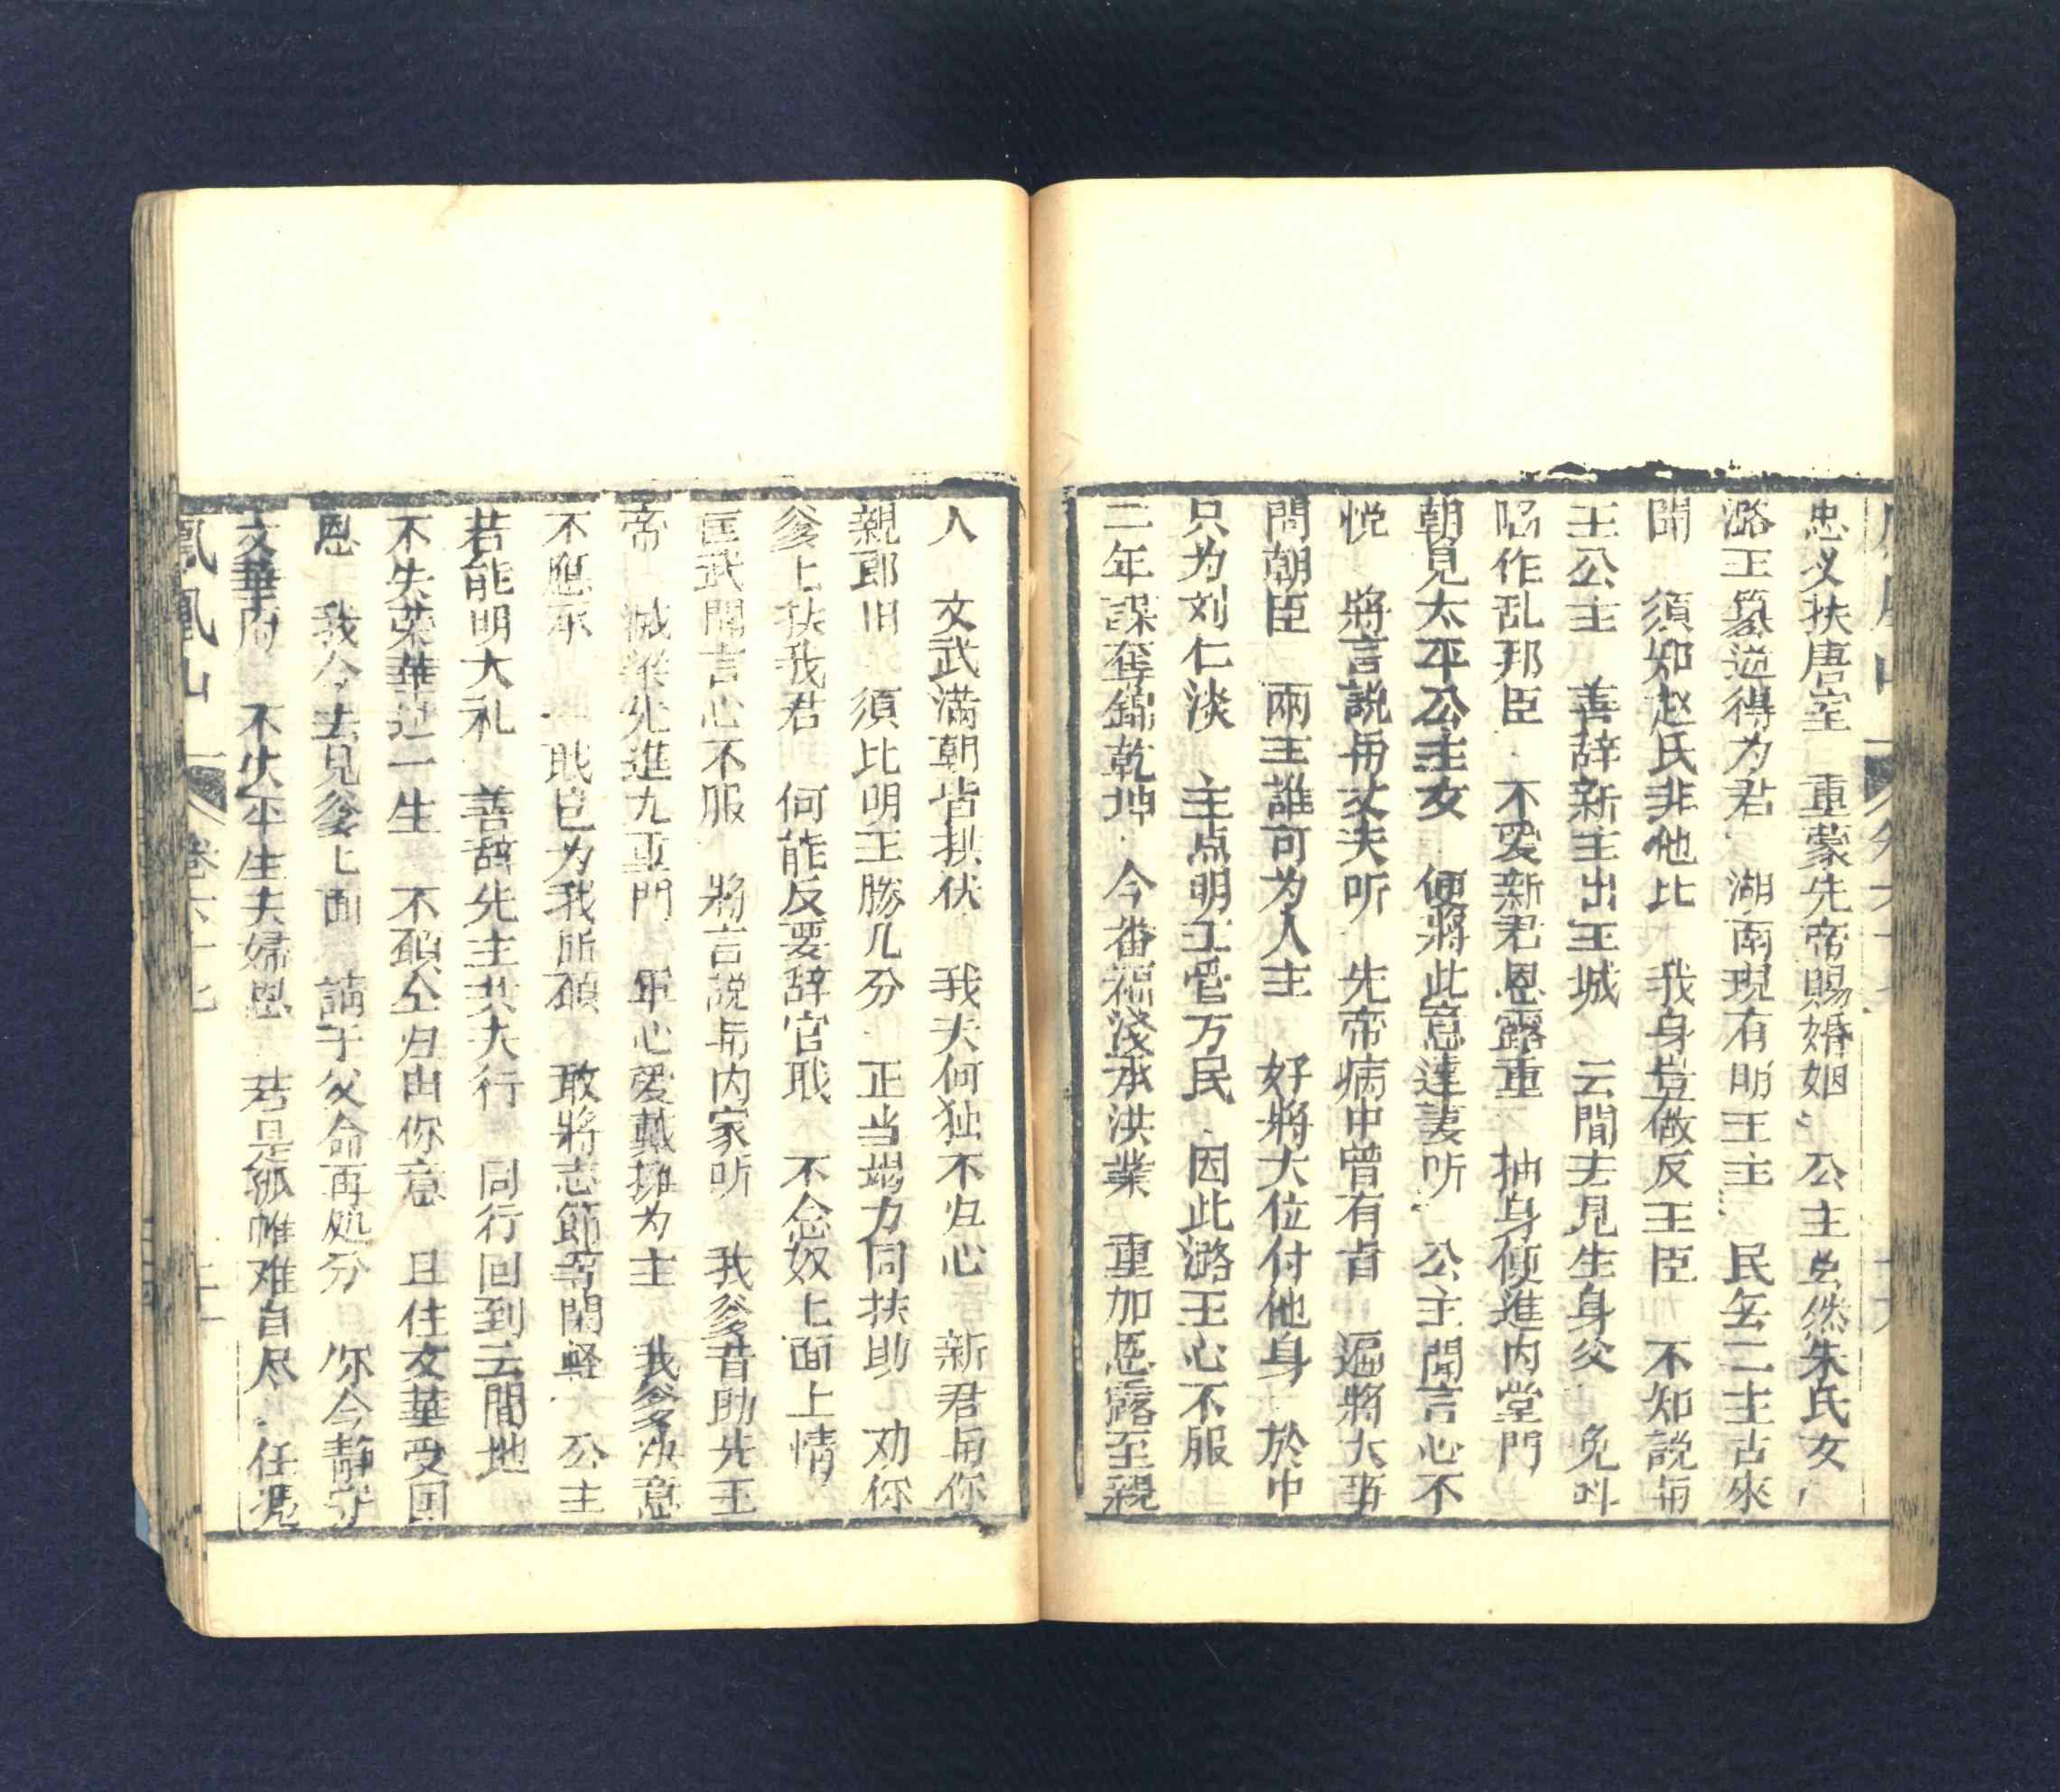 忠义扶唐室　重蒙先帝賜婚姻　公主虽然朱氏女
潞王篡逆得为君　湖南現有明王主　民無二主古來
聞　須知赵氏非他比　我身豈做反王臣　不知説与
王公主　善辞新主出王城　云間去見生身父　免叫
陷作乱邦臣　不爱新君恩露重　抽身便進内堂門
朝見太平公主女　便將此意達妻听　公主聞言心不
悦　將言説与丈夫听　先帝病中曾有旨　遍將大事
問朝臣　兩王誰可为人主　好將大位付他身　於中
只为刘仁淡　主点明王管万民　因此潞王心不服
二年謀奪錦乾坤　今番福淺承洪業　重加恩露至親
人　文武满朝皆拱伏　我夫何独不归心　新君与你
親郎旧　須比明王勝几分　正当端力同扶助　劝你
爹上扶我君　何能反要辞官职　不念奴上面上情
匡武聞言心不服　將言説与内家听　我爹昔助先王
帝　滅梁先進九重門　軍心爱戴擁为主　我爹决意
不應承　职邑为我所碩　敢將志節等閑輕　公主
若能明大礼　善辞先主共夫行　同行回到云間地
不失荣華过一生　不碩仝归由你意　且住文華受国
恩　我今去見爹上面　請于父命再処分　你今静守
文華府　不失平生夫婦恩　若是孤帷难自尽　任凭
鳳凰山　卷六十七